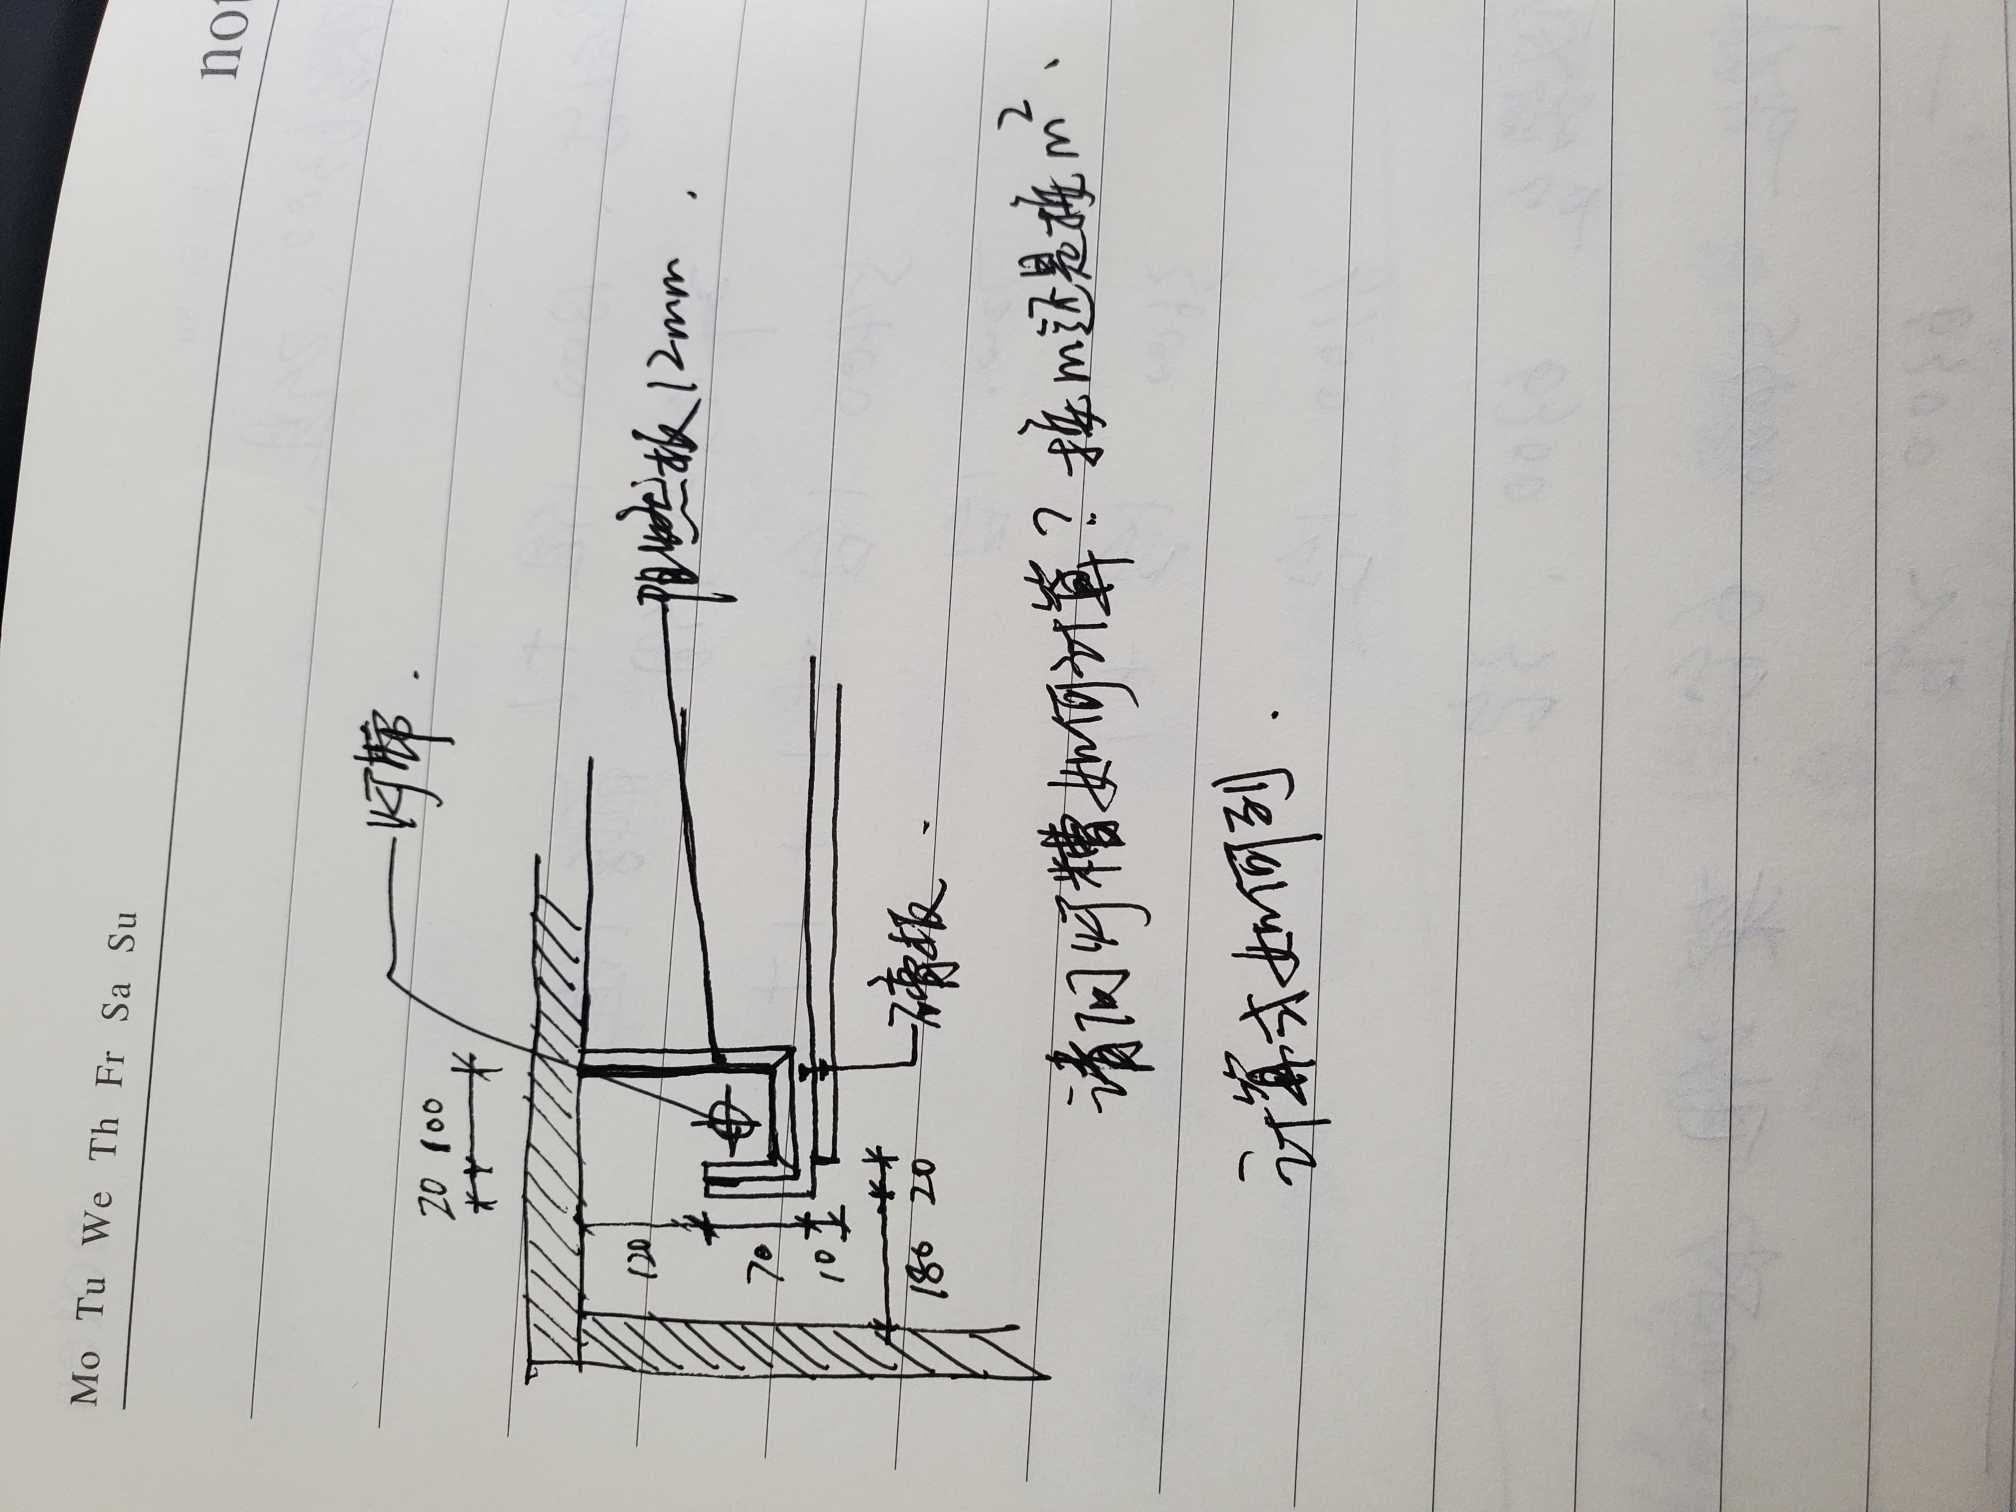 Mo Tu We Th Fr Sa Su
not
灯带.
20 100
120
阻燃板12mm.
70
10
180 20
石膏板.
请问灯糟如何计算？按m还是按m²、
计算式如何列.